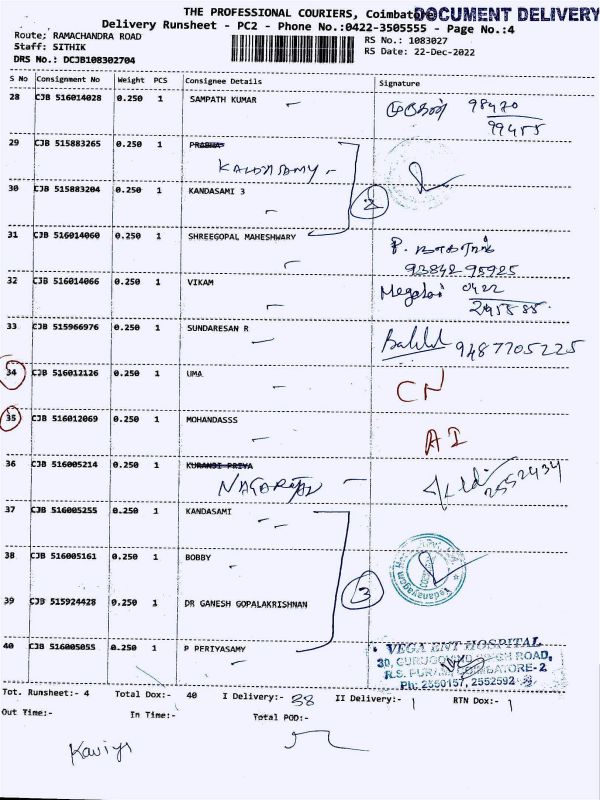 THE PROFESSIONAL COURIERS, Coimbatore
DOCUMENT DELIVERY
Delivery Runsheet - PC2 - Phone No.:0422-3505555 - Page No.:4
Route: RAMACHANDRA ROAD
RS No.: 1083027
Staff: SITHIK
RS Date: 22-Dec-2022
DRS No.: DCJB108302704
S No Consignment No Weight PCS Consignee Details Signature
28 CJB 516014028 0.250 1 SAMPATH KUMAR முருகன் 98470
99455
29 CJB 515883265 0.250 1 PRABHA
30 CJB 515883204 0.250 1 KANDASAMI 3 2
31 CJB 516014060 0.250 1 SHREEGOPAL MAHESHWARY
P. நாகராஜ்
93842 95925
32 CJB 516014066 0.250 1 VIKAM 0422
33 CJB 515966976 0.250 1 SUNDARESAN R 9487705225
34 CJB 516012126 0.250 1 UMA CN
35 CJB 516012069 0.250 1 MOHANDASSS AI
36 CJB 516005214 0.250 1 KURANDI PRIYA
NAGARAJAN 2552434
37 CJB 516005255 0.250 1 KANDASAMI
38 CJB 516005161 0.250 1 BOBBY
39 CJB 515924428 0.250 1 DR GANESH GOPALAKRISHNAN 3
40 CJB 516005055 0.250 1 P PERIYASAMY
VEGA ENT HOSPITAL
30, GURUGOVIND SINGH ROAD,
R.S. PURAM, COIMBATORE-2
Ph: 2550157, 2552592
Tot. Runsheet:- 4 Total Dox:- 40 I Delivery:- 38 II Delivery:- 1 RTN Dox:- 1
Out Time:- In Time:- Total POD:-
Kaviya